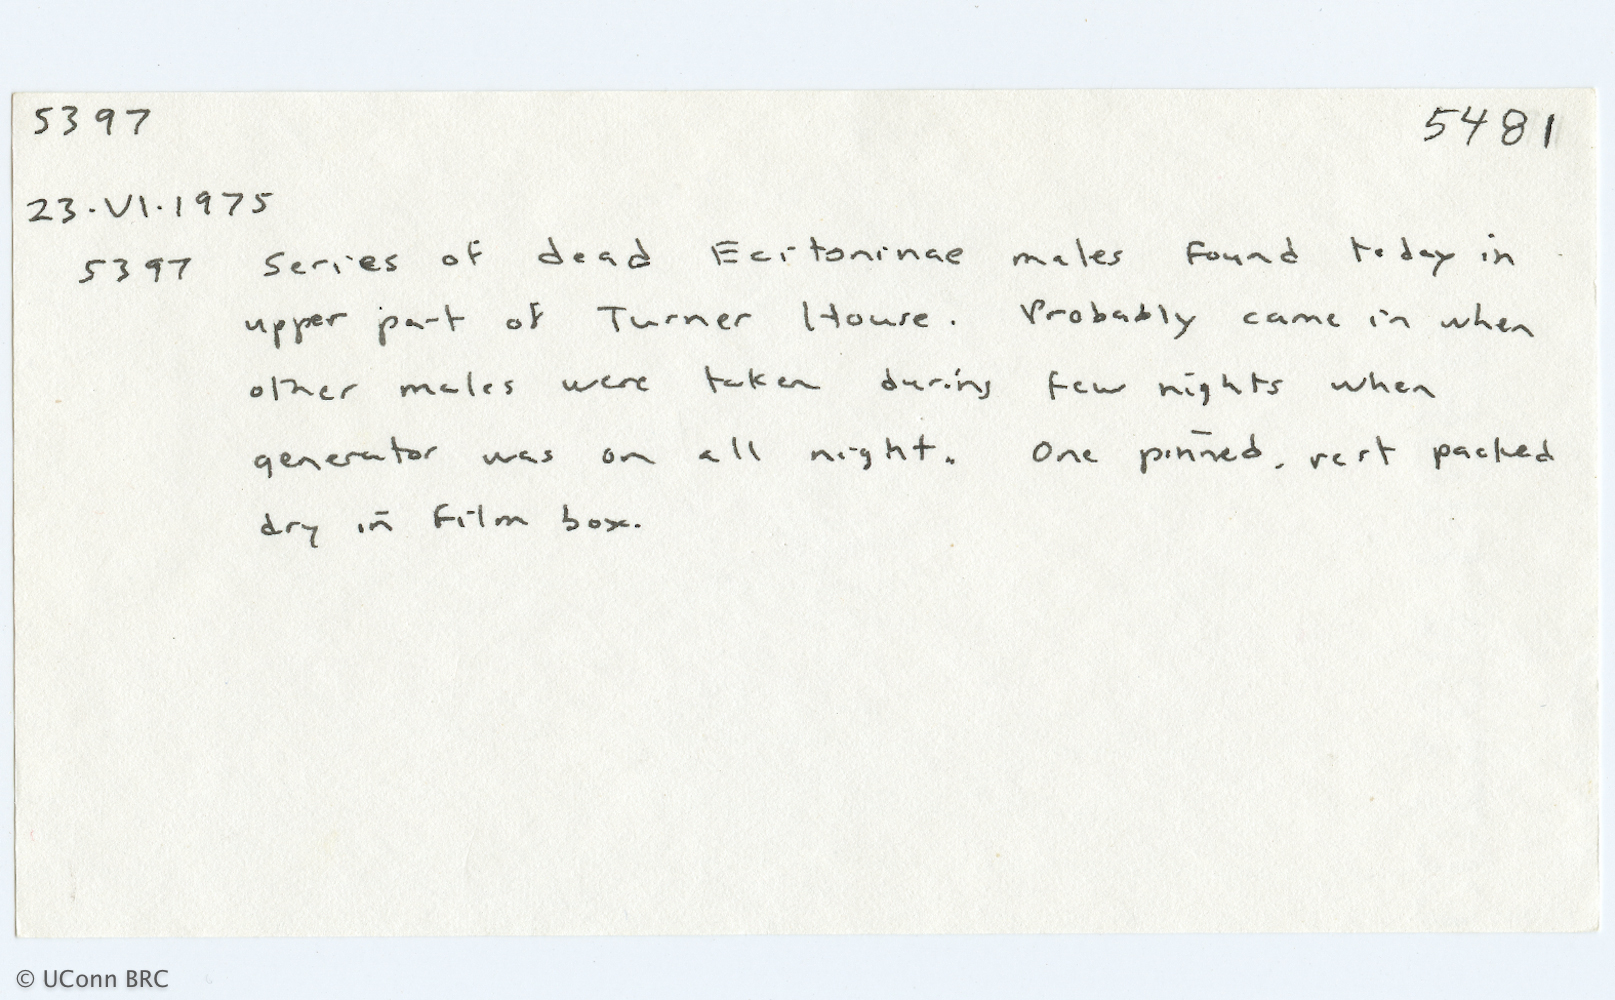 5397 5481
23.VI.1975
5397 Series of dead Ecitoninae males found today in
upper part of Turner House. Probably came in when
other males were taken during few nights when
generator was on all night. One pinned, rest packed
dry in film box.
© UConn BRC